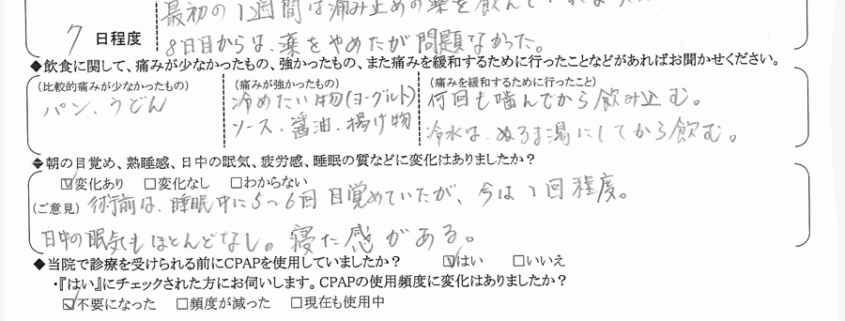 最初の1週間は痛み止めの薬を飲んで
7 日程度
8日目からは、薬をやめたが問題なかった。
◆飲食に関して、痛みが少なかったもの、強かったもの、また痛みを緩和するために行ったことなどがあればお聞かせください。
(比較的痛みが少なかったもの)
パン、うどん
(痛みが強かったもの)
冷めたい物(ヨーグルト)
ソース、醤油、揚げ物
(痛みを緩和するために行ったこと)
何回も噛んでから飲み込む。
冷水は、ぬるま湯にしてから飲む。
◆朝の目覚め、熟睡感、日中の眠気、疲労感、睡眠の質などに変化はありましたか?
☑変化あり □変化なし □わからない
(ご意見) 術前は、睡眠中に5〜6回目覚めていたが、今は1回程度。
日中の眠気もほとんどなし。寝た感がある。
◆当院で診療を受けられる前にCPAPを使用していましたか? ☑はい □いいえ
・『はい』にチェックされた方にお伺いします。CPAPの使用頻度に変化はありましたか?
☑不要になった □頻度が減った □現在も使用中